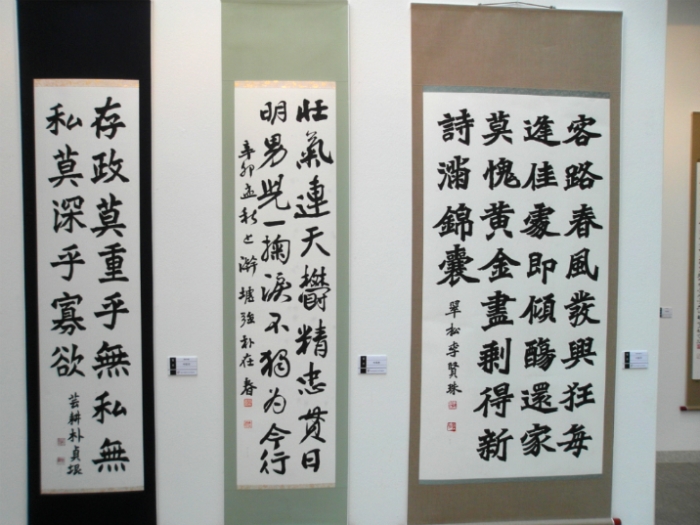 存政莫重乎無私無
私莫深乎寡欲
芸耕朴貞
壯氣連天鬱精忠貫日
明男兒一掬淚不獨為今行
辛卯孟秋上澣 朴在春
客路春風發興狂每
逢佳處即傾觴還家
莫愧黃金盡剩得新
詩滿錦囊
翠松李賢珠